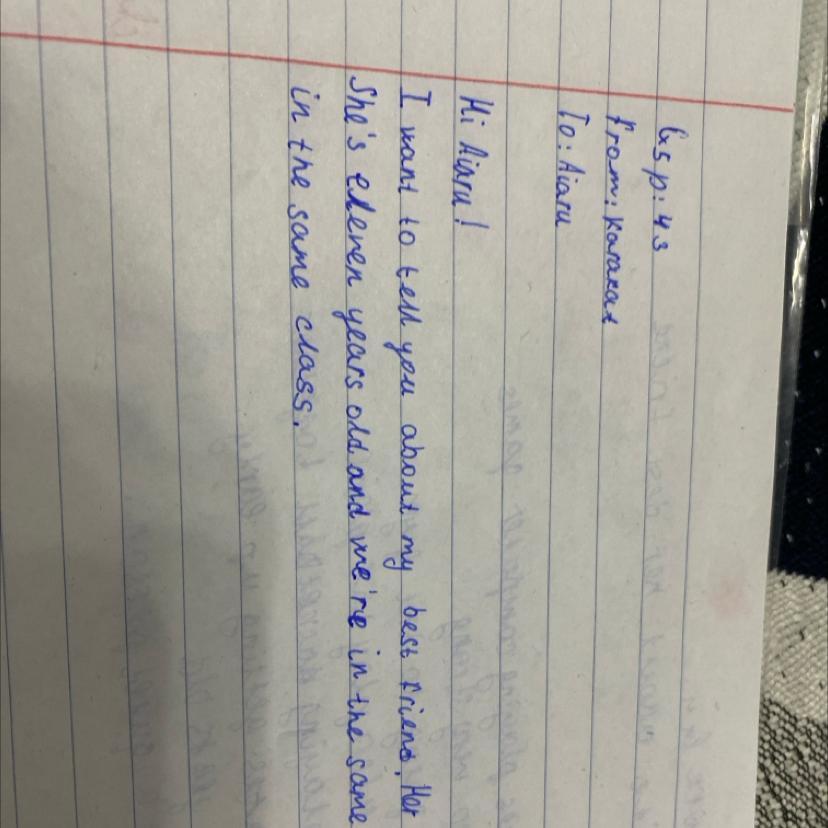 Ex 5 p: 43
From: Karakat
To: Aiaru
Hi Aiaru!
I want to tell you about my best friend. Her
She's eleven years old and we're in the same
in the same class.